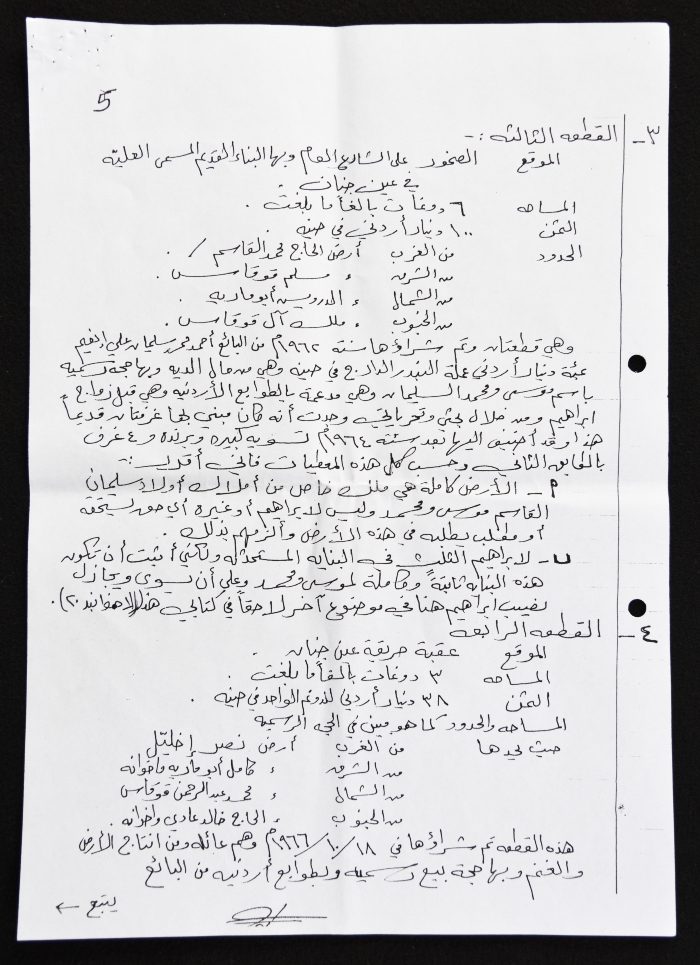 5
٣- القطعه الثالثه :-
الموقع الصخور على الشارع العام وبها البناء القديم المسمى العليّه
في عين جنان .
المساحه ٦ دونمات بالغاً ما بلغت .
الثمن ١٠٠ دينار أردني في حينه .
الحدود من الغرب أرض الحاج محمد القاسم /.
من الشرق ، مسلم قوقاس .
من الشمال ، الدرويس أبو ماريه .
من الجنوب ، ملك آل قوقاس .
وهي قطعتان وتم شراؤها سنة ١٩٦٢م من البائع أحمد محمد سليمان علي إنعيم
بمئة دينار أردني عملة البندر الدارج في حينه وهي من مال الديه وبها حجة رسميه
باسم موسى ومحمد السلمان وهي مدعمة بالطوابع الأردنيه وهي قبل زواج
ابراهيم ومن خلال بحثي وتحرياتي وجدت أنه كان مبني بها غرفتان قديماً
هذا وقد أضيف اليها بعد سنة ١٩٦٤م تسويه كبيره وبرنده و ٤ غرف
بالطابق الثاني وحسب كل هذه المعطيات فانني أقرر :-
أ- الأرض كاملة هي ملك خاص من أملاك أولاد سليمان
القاسم موسى ومحمد وليس لابراهيم أو غيره أي حق يستحقه
أو مطلب يطلبه في هذه الأرض وألزمهم بذلك .
ب- لابراهيم الثلث في البنايه المستحدثه ولكني أثبت أن تكون
هذه البناية ثابتةً وكاملة لموسى ومحمد وعلي أن يسوى ويجازل
نصيب ابراهيم هنا في موضوع آخر لاحقاً في كتابي هذا (لاحظ البند ٢٠).
٤- القطعه الرابعه
الموقع عقبة حريقة عين جنان .
المساحه ٣ دونمات بالغاً ما بلغت .
الثمن ٣٨ دينار أردني للدونم الواحد في حينه .
المساحه والحدود كما هو مبين في الحجج الرسميه
حيث يحدها من الغرب أرض نصر إخليّل
من الشرق ، كامل أبو ماريه وأخوانه
من الشمال ، محمد عبد الرحمن قوقاس
من الجنوب ، الحاج خالد عادي وأخوانه .
هذه القطعه تم شراؤها في ١٨/١٠/١٩٦٦م وهم عائله ومن انتاج الأرض
والغنم وبها حجة بيع رسميه وبطوابع أردنيه من البائع
يتبع ←